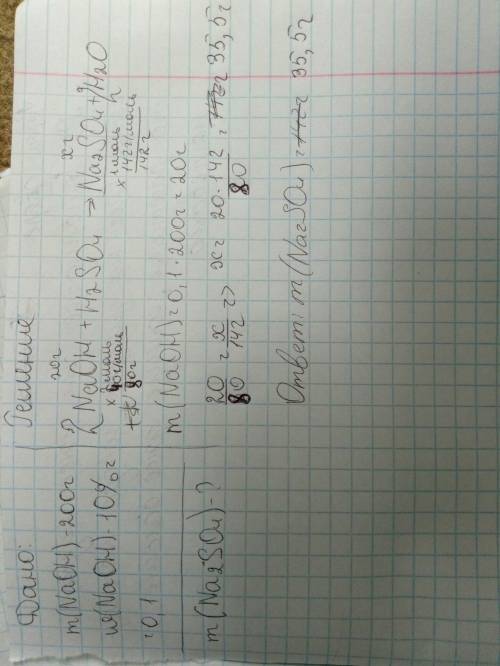 Дано:
m(NaOH) - 200г
ω(NaOH) - 10% =
= 0,1
m(Na2SO4) - ?
Решение
20г xг
2NaOH + H2SO4 => Na2SO4 + 2H2O
x 2моль x 1моль
40г/моль 142г/моль
80г 142г
m(NaOH) = 0,1 · 200г = 20г
20/80 = x/142 => x = 20·142/80 = 35,5г
Ответ: m(Na2SO4) = 35,5г